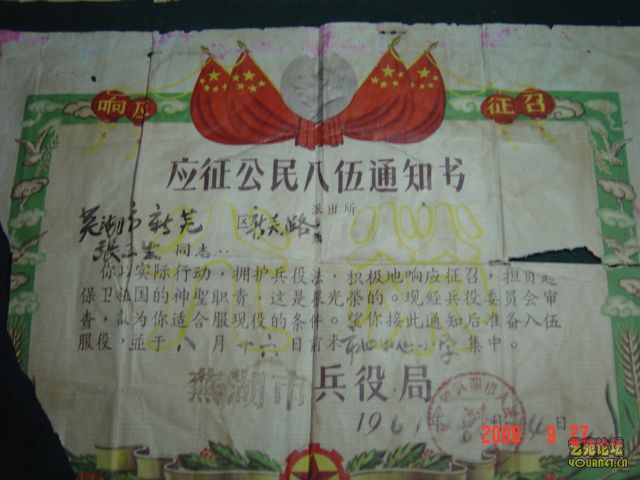 响应 征召
应征公民入伍通知书
派出所
芜湖市新芜 区新芜路
同志:
你以实际行动,拥护兵役法,积极地响应征召,担负起
保卫祖国的神聖职责,这是最光荣的。现经兵役委员会审
查,认为你适合服现役的条件。望你接此通知后准备入伍
服役,並于八月十六日前来 中心小学 集中。
芜湖市兵役局
196 年 月 4日
2008 9 27
艺苑论坛
YOURNET.CN